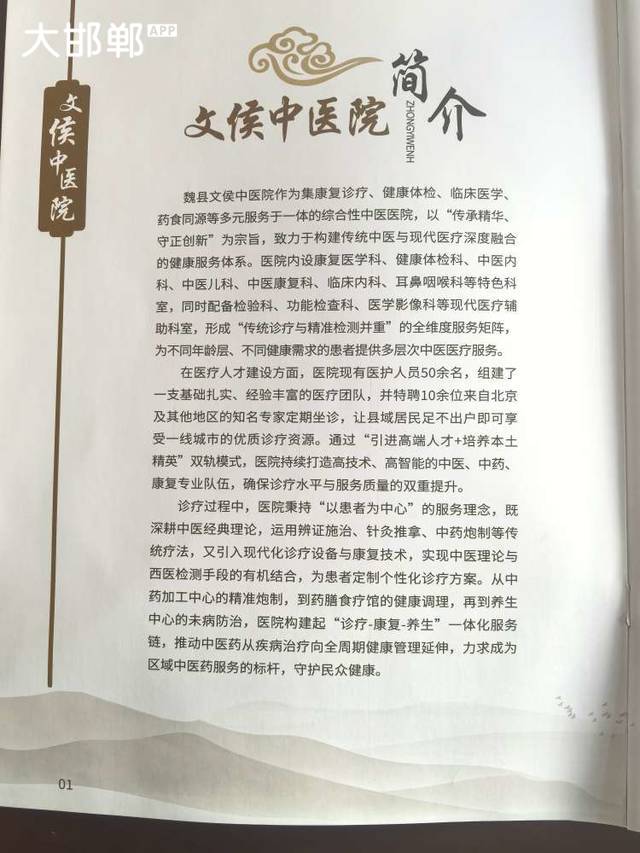 大邯郸APP
文侯中医院
文侯中医院
简介
ZHONGYIWENH
魏县文侯中医院作为集康复诊疗、健康体检、临床医学、
药食同源等多元服务于一体的综合性中医医院，以“传承精华、
守正创新”为宗旨，致力于构建传统中医与现代医疗深度融合
的健康服务体系。医院内设康复医学科、健康体检科、中医内
科、中医儿科、中医康复科、临床内科、耳鼻咽喉科等特色科
室，同时配备检验科、功能检查科、医学影像科等现代医疗辅
助科室，形成“传统诊疗与精准检测并重”的全维度服务矩阵，
为不同年龄层、不同健康需求的患者提供多层次中医医疗服务。
在医疗人才建设方面，医院现有医护人员50余名，组建了
一支基础扎实、经验丰富的医疗团队，并特聘10余位来自北京
及其他地区的知名专家定期坐诊，让县域居民足不出户即可享
受一线城市的优质诊疗资源。通过“引进高端人才+培养本土
精英”双轨模式，医院持续打造高技术、高智能的中医、中药、
康复专业队伍，确保诊疗水平与服务质量的双重提升。
诊疗过程中，医院秉持“以患者为中心”的服务理念，既
深耕中医经典理论，运用辨证施治、针灸推拿、中药炮制等传
统疗法，又引入现代化诊疗设备与康复技术，实现中医理论与
西医检测手段的有机结合，为患者定制个性化诊疗方案。从中
药加工中心的精准炮制，到药膳食疗馆的健康调理，再到养生
中心的未病防治，医院构建起“诊疗-康复-养生”一体化服务
链，推动中医药从疾病治疗向全周期健康管理延伸，力求成为
区域中医药服务的标杆，守护民众健康。
01